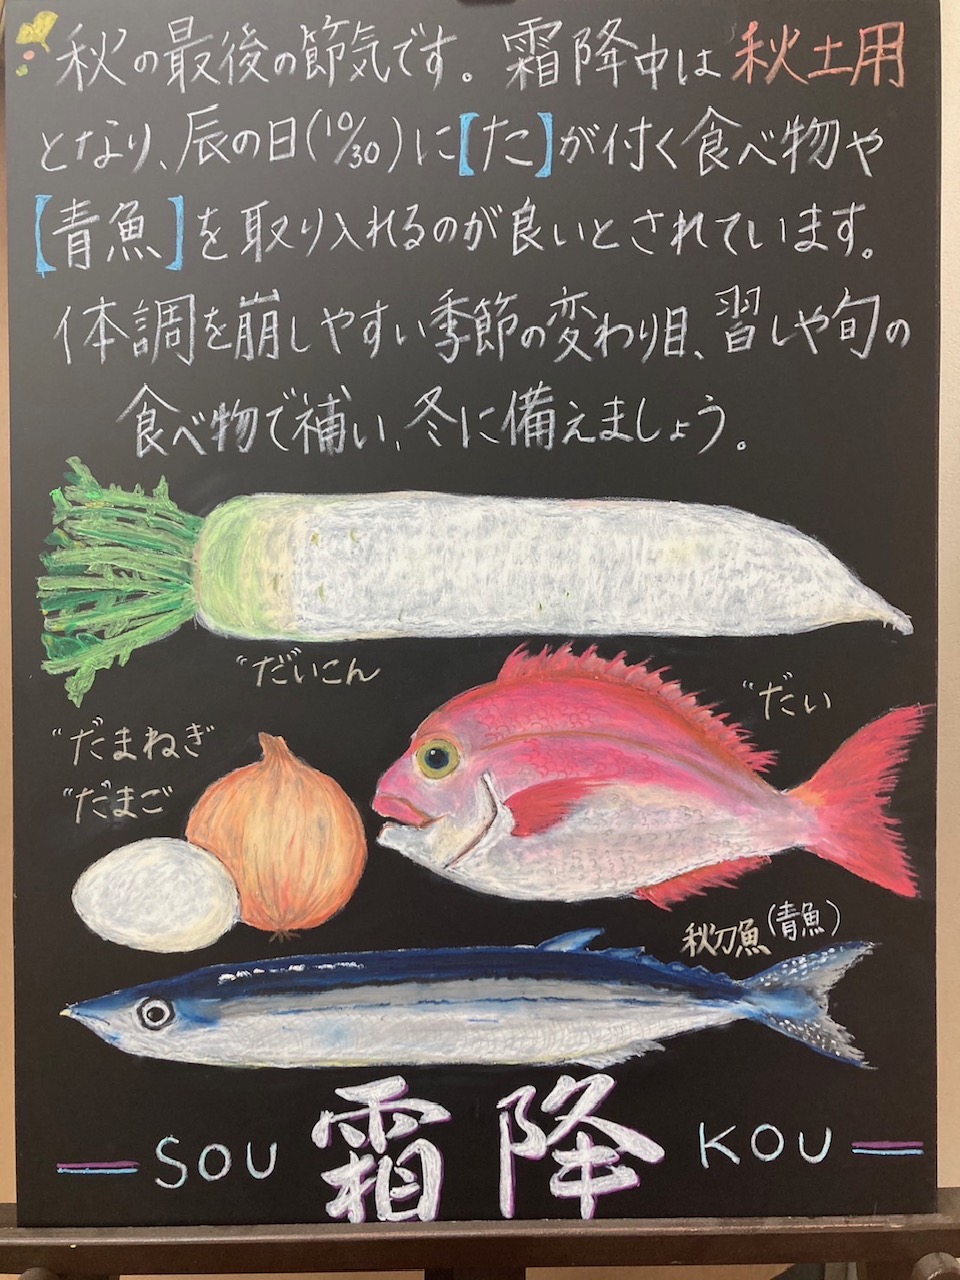 秋の最後の節気です。霜降中は秋土用
となり、辰の日(10/30)に【た】が付く食べ物や
【青魚】を取り入れるのが良いとされています。
体調を崩しやすい季節の変わり目、習しや旬の
食べ物で補い、冬に備えましょう。
“だいこん
“だい
“だまねぎ
“だまご
秋刀魚(青魚)
SOU 霜降 KOU